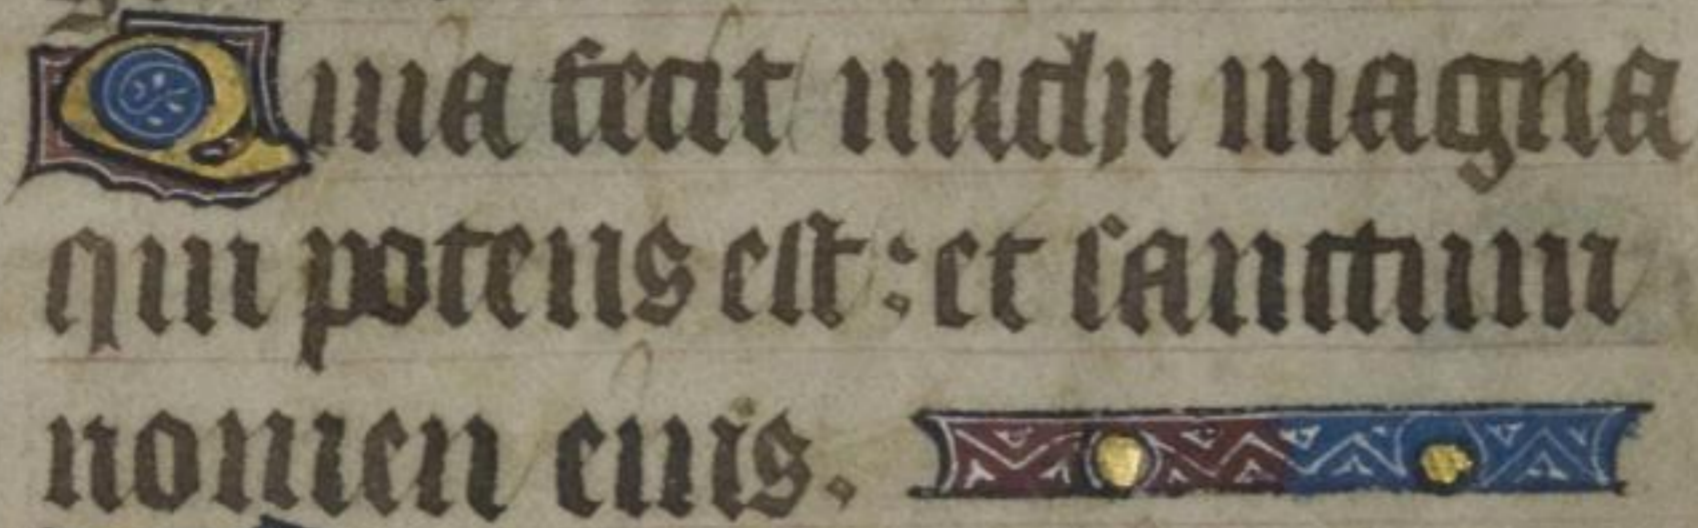 Quia fecit michi magna
qui potens est : et sanctum
nomen eius.